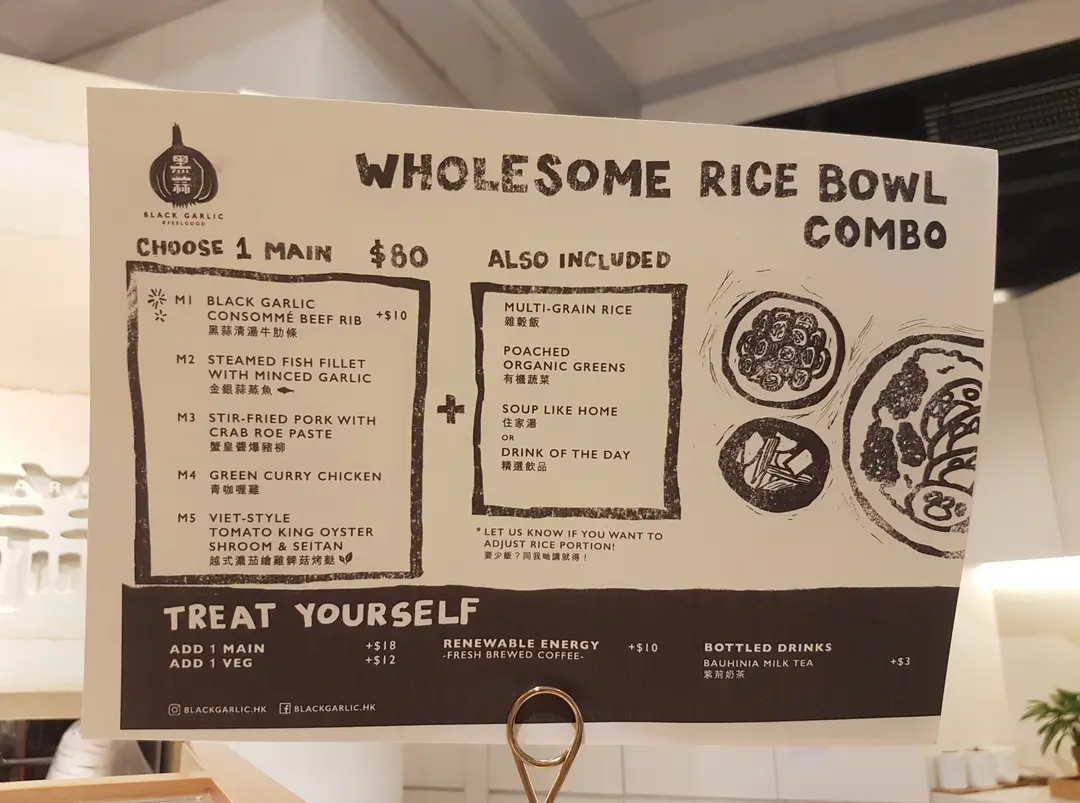 黑蒜
BLACK GARLIC
#FEELGOOD
WHOLESOME RICE BOWL
COMBO
CHOOSE 1 MAIN $80
M1 BLACK GARLIC
CONSOMMÉ BEEF RIB +$10
黑蒜清湯牛肋條
M2 STEAMED FISH FILLET
WITH MINCED GARLIC
金銀蒜蒸魚
M3 STIR-FRIED PORK WITH
CRAB ROE PASTE
蟹皇醬爆豬柳
M4 GREEN CURRY CHICKEN
青咖喱雞
M5 VIET-STYLE
TOMATO KING OYSTER
SHROOM & SEITAN
越式濃茄燴雞髀菇烤麩
+
ALSO INCLUDED
MULTI-GRAIN RICE
雜穀飯
POACHED
ORGANIC GREENS
有機蔬菜
SOUP LIKE HOME
住家湯
OR
DRINK OF THE DAY
精選飲品
* LET US KNOW IF YOU WANT TO
ADJUST RICE PORTION!
要少飯？同我哋講就得！
TREAT YOURSELF
ADD 1 MAIN +$18
ADD 1 VEG +$12
RENEWABLE ENERGY +$10
-FRESH BREWED COFFEE-
BOTTLED DRINKS
BAUHINIA MILK TEA +$3
紫荊奶茶
BLACKGARLIC.HK BLACKGARLIC.HK